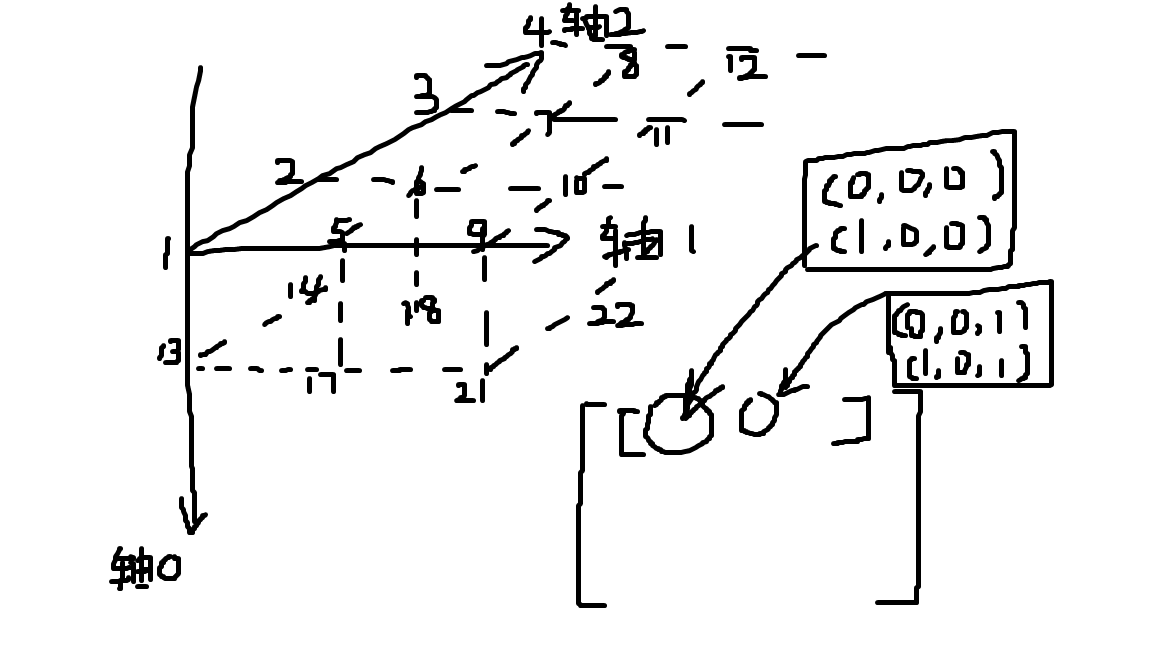 4 轴2
8 12
3 7 11
2 6 10
1 5 9 轴1
14 18 22
13 17 21
轴0
(0,0,0)
(1,0,0)
(0,0,1)
(1,0,1)
[[ ]
]